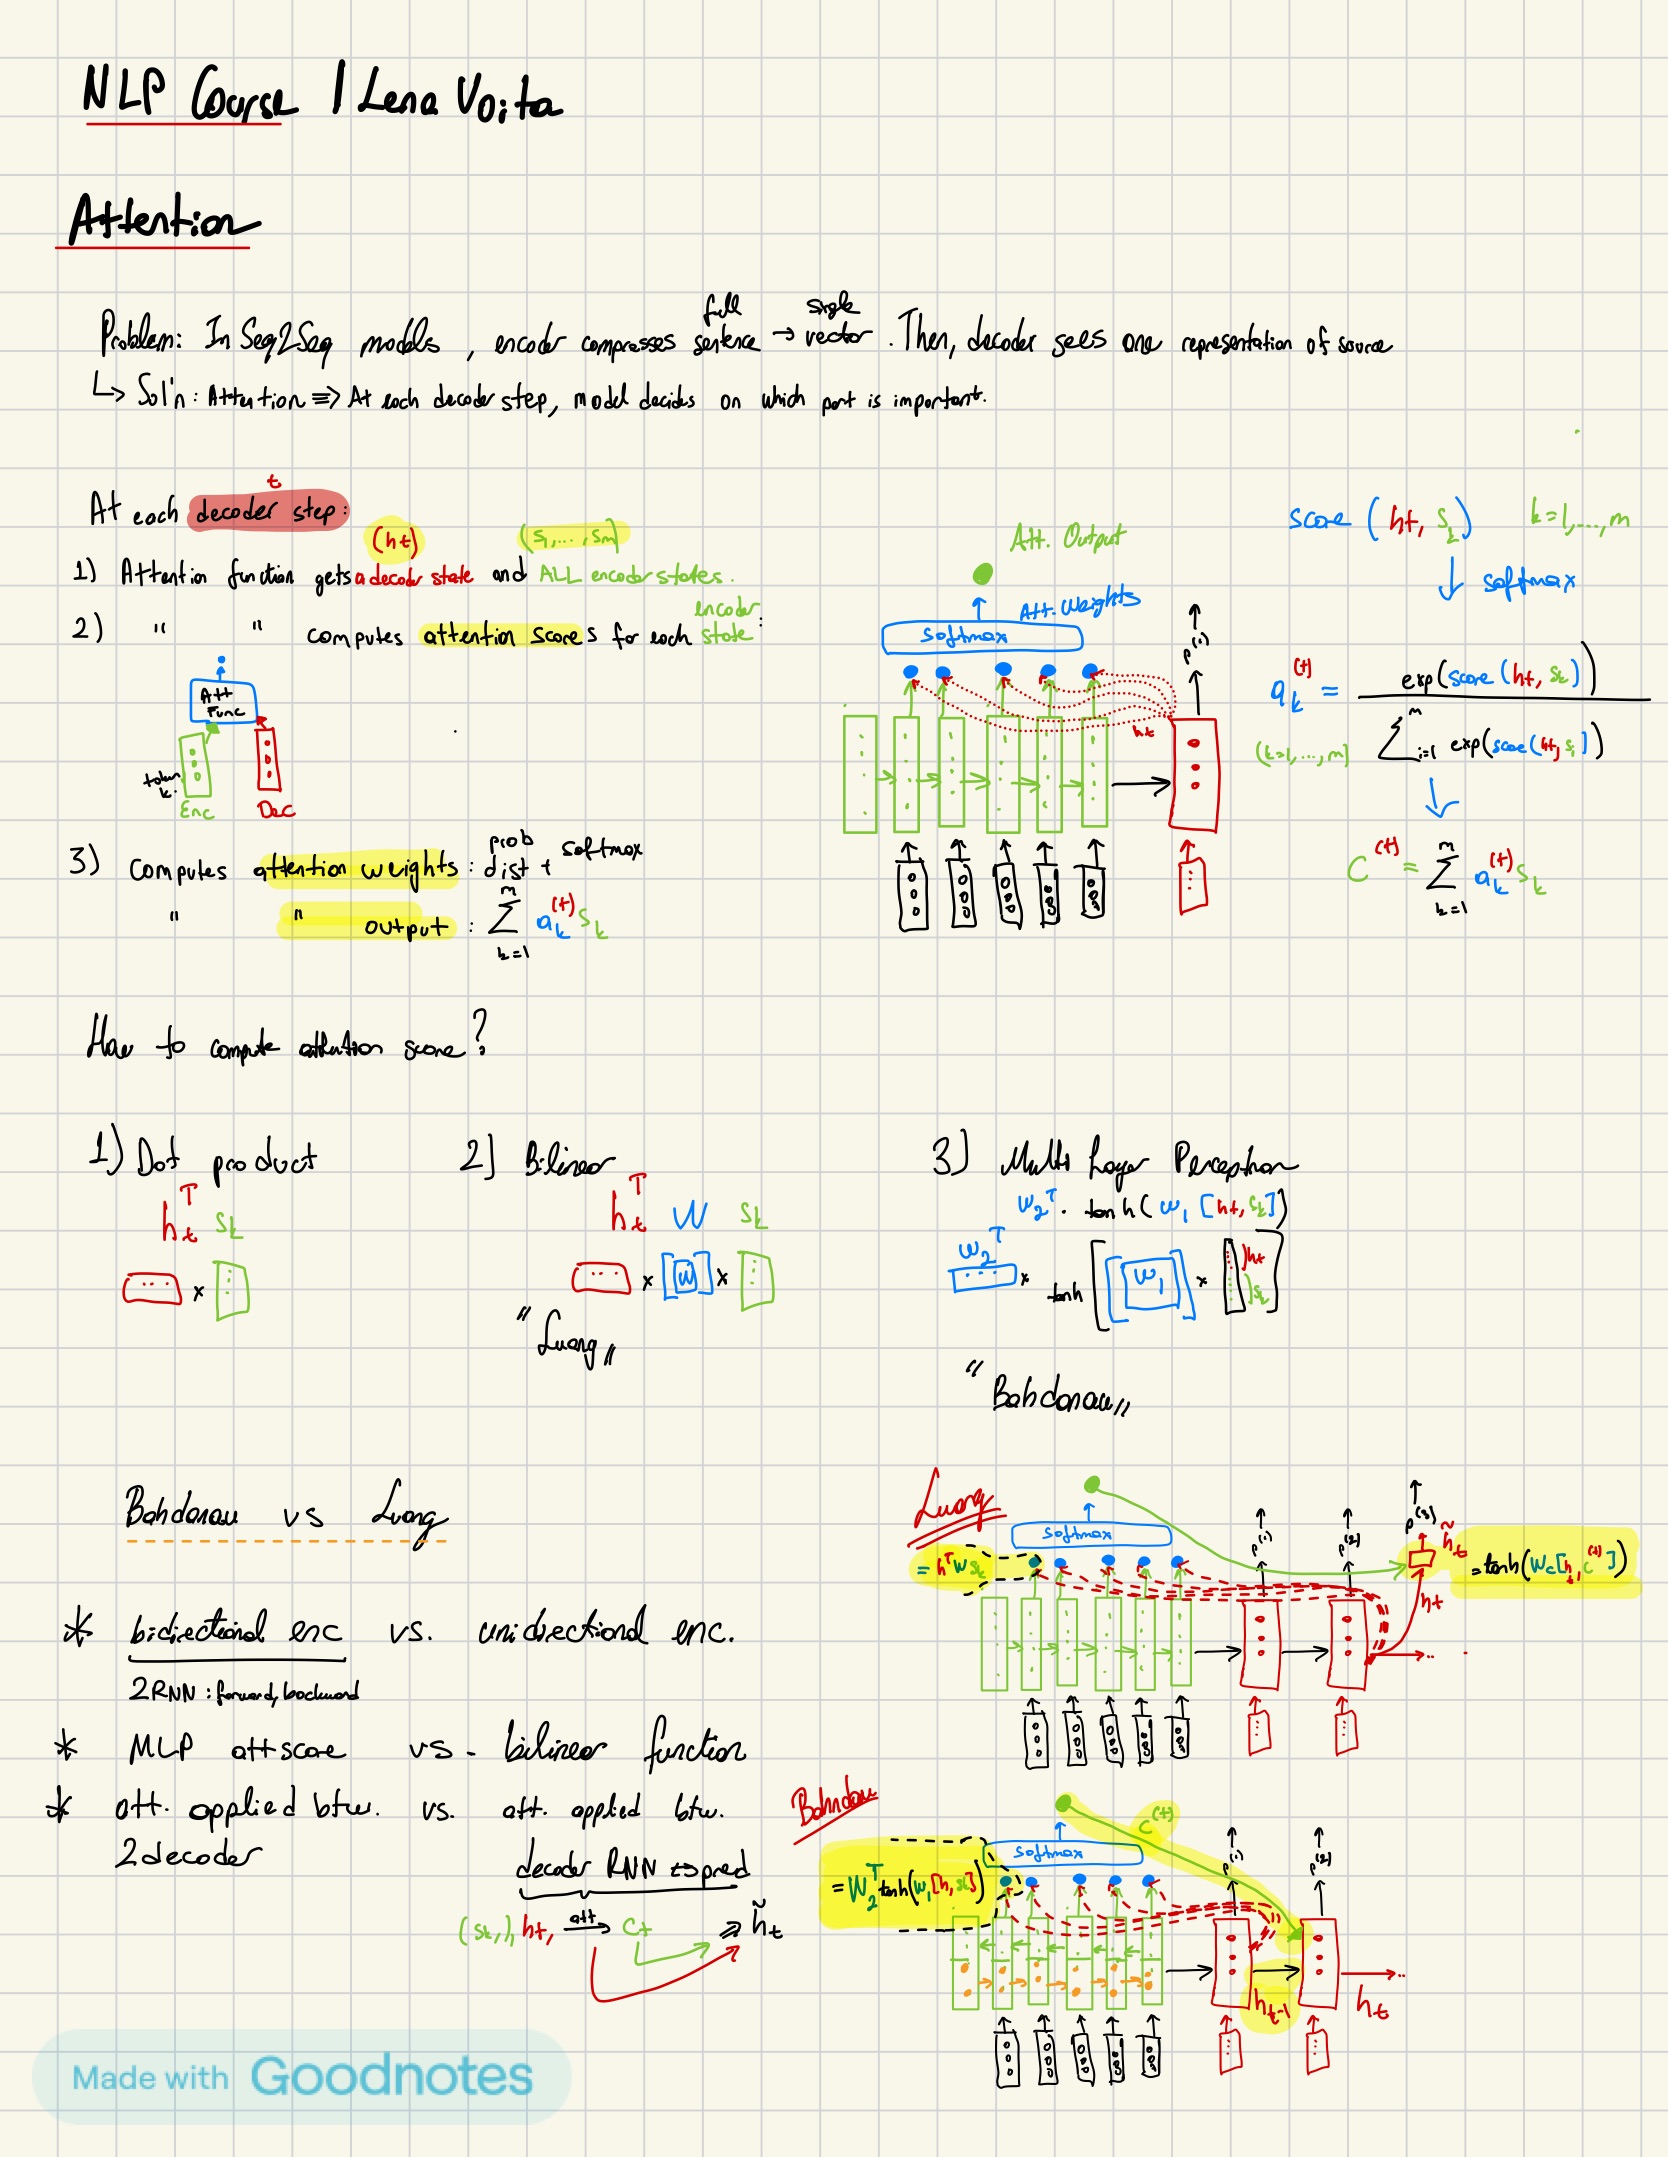 NLP Course | Lena Voita
Attention
Problem: In Seq2Seq models, encoder compresses full sentence → single vector. Then, decoder sees one representation of source
↳ Sol'n: Attention ⇒ At each decoder step, model decides on which part is important.
At each decoder step: t
(ht) (s1,..., sm)
1) Attention function gets a decoder state and ALL encoder states.
2) " " computes attention scores for each encoder state:
Att Func
token k.
Enc Dec
3) Computes attention weights: prob dist + softmax
" " output: ∑_{k=1}^{m} a_k^(t) s_k
Att. Output
Att. Weights
softmax
p(1)
ht
score (ht, sk) k=1,...,m
↓ softmax
a_k^(t) = exp(score(ht, sk)) / ∑_{i=1}^{m} exp(score(ht, si))
(k=1,...,m)
C^(t) = ∑_{k=1}^{m} a_k^(t) s_k
How to compute attention score?
1) Dot product
h_t^T s_k
×
2) Bilinear
h_t^T W s_k
× [W] ×
"Luong"
3) Multi Layer Perceptron
w2^T · tanh(w1 [ht, sk])
w2^T × tanh [[w1] × ht sk]
"Bahdanau"
Bahdanau vs Luong
* bidirectional enc vs. unidirectional enc.
2RNN: forward, backward
* MLP att score vs. bilinear function
* att. applied btw. vs. att. applied btw.
2 decoder decoder RNN ↔ pred
(sk,), ht, att→ ct ⇒ h̃t
Luong
softmax
= h^T W sk
p(1) p(2) p(3)
h̃t = tanh(Wc[ht, c^(t)])
ht
Bahndau
c^(t)
softmax
= W2^T tanh(w1[h, sk])
p(1) p(2)
ht-1 ht
Made with Goodnotes